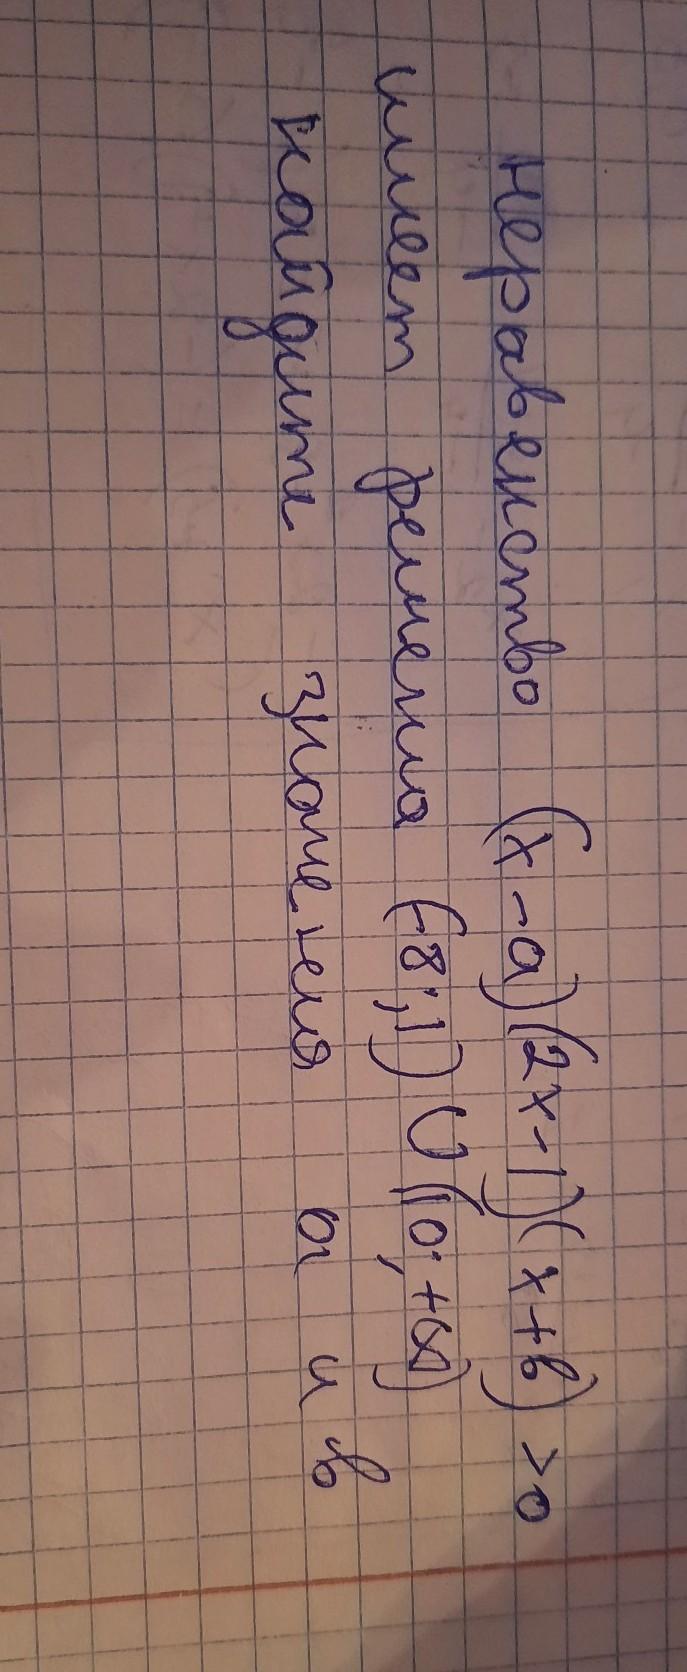 неравенство (x-a)(2x-1)(x+b) >0
имеет решения (-8;1) ∪ (10;+∞)
найдите значения a и b